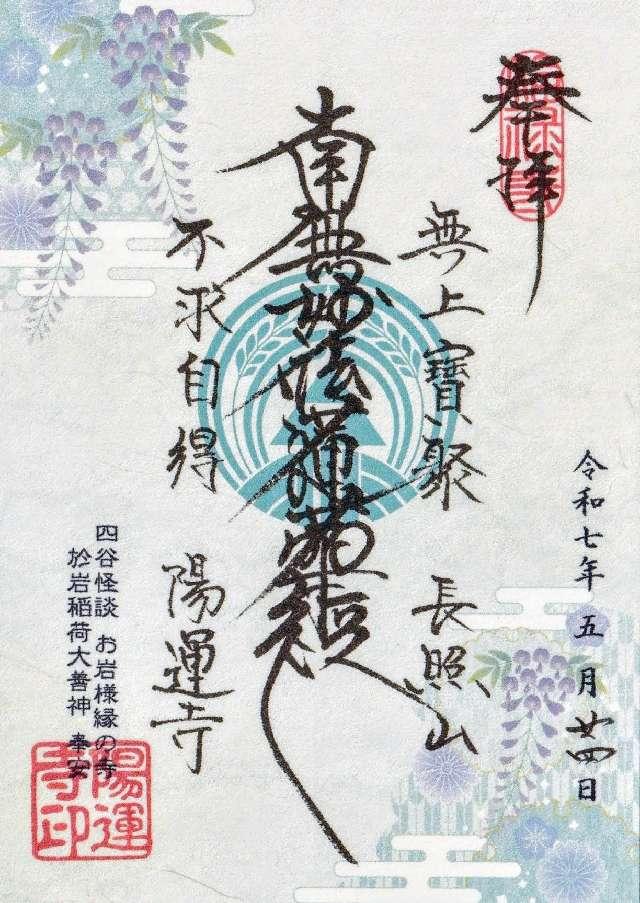 奉拝
令和七年 五月廿四日
無上寶聚 長照山
南無妙法蓮華経
不求自得 陽運寺
四谷怪談 お岩様縁の寺
於岩稲荷大善神 奉安
陽運
寺印